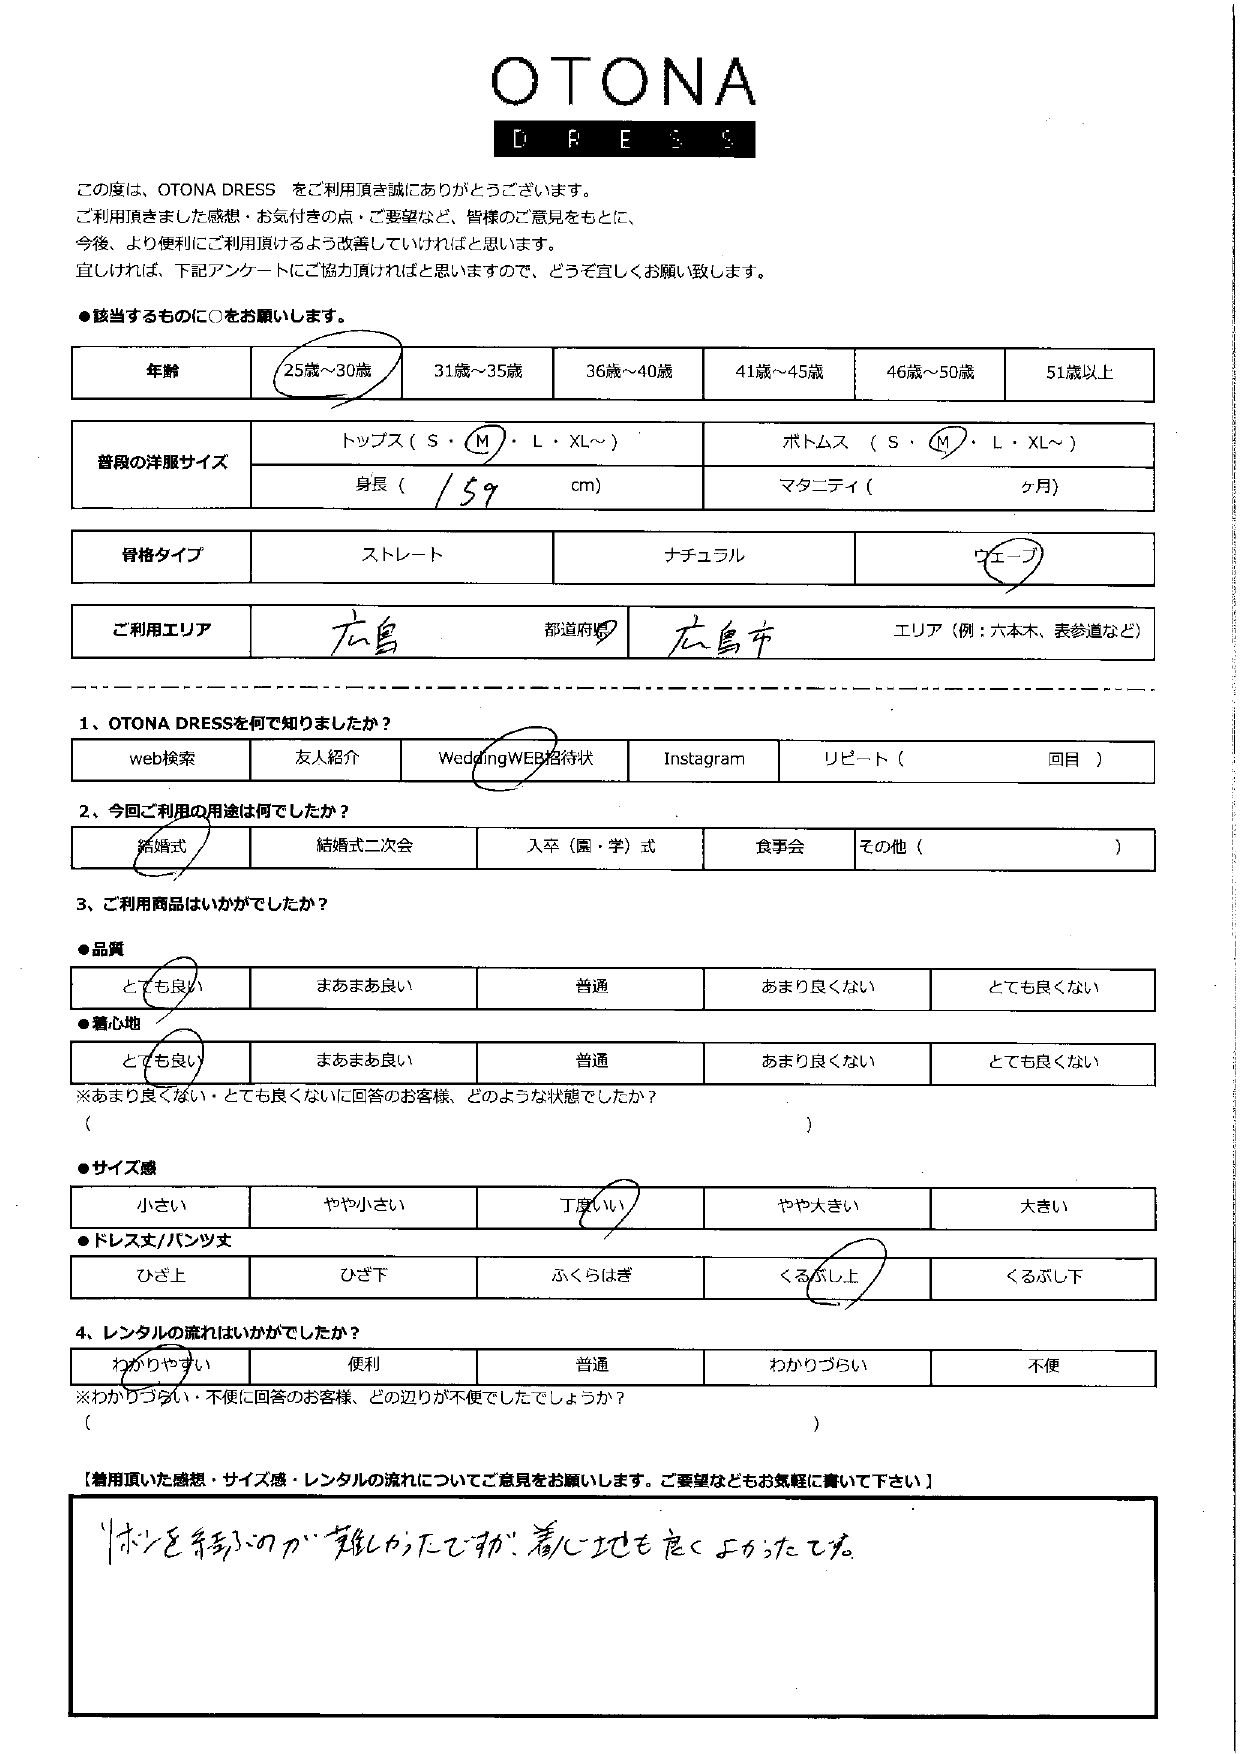 OTONA
DRESS
この度は、OTONA DRESS　をご利用頂き誠にありがとうございます。
ご利用頂きました感想・お気付きの点・ご要望など、皆様のご意見をもとに、
今後、より便利にご利用頂けるよう改善していければと思います。
宜しければ、下記アンケートにご協力頂ければと思いますので、どうぞ宜しくお願い致します。
●該当するものに○をお願いします。
年齢 25歳～30歳 31歳～35歳 36歳～40歳 41歳～45歳 46歳～50歳 51歳以上
普段の洋服サイズ トップス ( S ・ M ・ L ・ XL～ ) ボトムス ( S ・ M ・ L ・ XL～ )
身長 ( 159 cm) マタニティ ( ヶ月)
骨格タイプ ストレート ナチュラル ウェーブ
ご利用エリア 広島 都道府県 広島市 エリア（例：六本木、表参道など）
1、OTONA DRESSを何で知りましたか？
web検索 友人紹介 WeddingWEB招待状 Instagram リピート（ 回目 ）
2、今回ご利用の用途は何でしたか？
結婚式 結婚式二次会 入卒（園・学）式 食事会 その他（ ）
3、ご利用商品はいかがでしたか？
●品質
とても良い まあまあ良い 普通 あまり良くない とても良くない
●着心地
とても良い まあまあ良い 普通 あまり良くない とても良くない
※あまり良くない・とても良くないに回答のお客様、どのような状態でしたか？
( )
●サイズ感
小さい やや小さい 丁度いい やや大きい 大きい
●ドレス丈/パンツ丈
ひざ上 ひざ下 ふくらはぎ くるぶし上 くるぶし下
4、レンタルの流れはいかがでしたか？
わかりやすい 便利 普通 わかりづらい 不便
※わかりづらい・不便に回答のお客様、どの辺りが不便でしたでしょうか？
( )
【着用頂いた感想・サイズ感・レンタルの流れについてご意見をお願いします。ご要望などもお気軽に書いて下さい】
リボンを結ぶのが難しかったですが、着心地も良くよかったです。